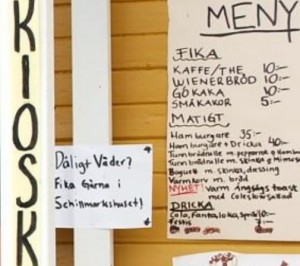 KIOSK
Dåligt Väder?
Fika Gärna i
Schillmarkshuset!
MENY
FIKA
KAFFE/THE 10:-
WIENERBRÖD 10:-
GOKAKA 10:-
SMÅKAKOR 5:-
MATIGT
Hamburgare 35:-
Hamburgare + Dricka 40:-
Tunnbrödrulle m. pepparrot o
Tunnbrödrulle m. skinka o Mimosa
Baguett m. skinka, dressing
Varmkorv m. bröd
NYHET! Varm ringshys toast
med Coleslawsallad
DRICKA
Cola, Fanta, loka, 10:-
Festis 7:-